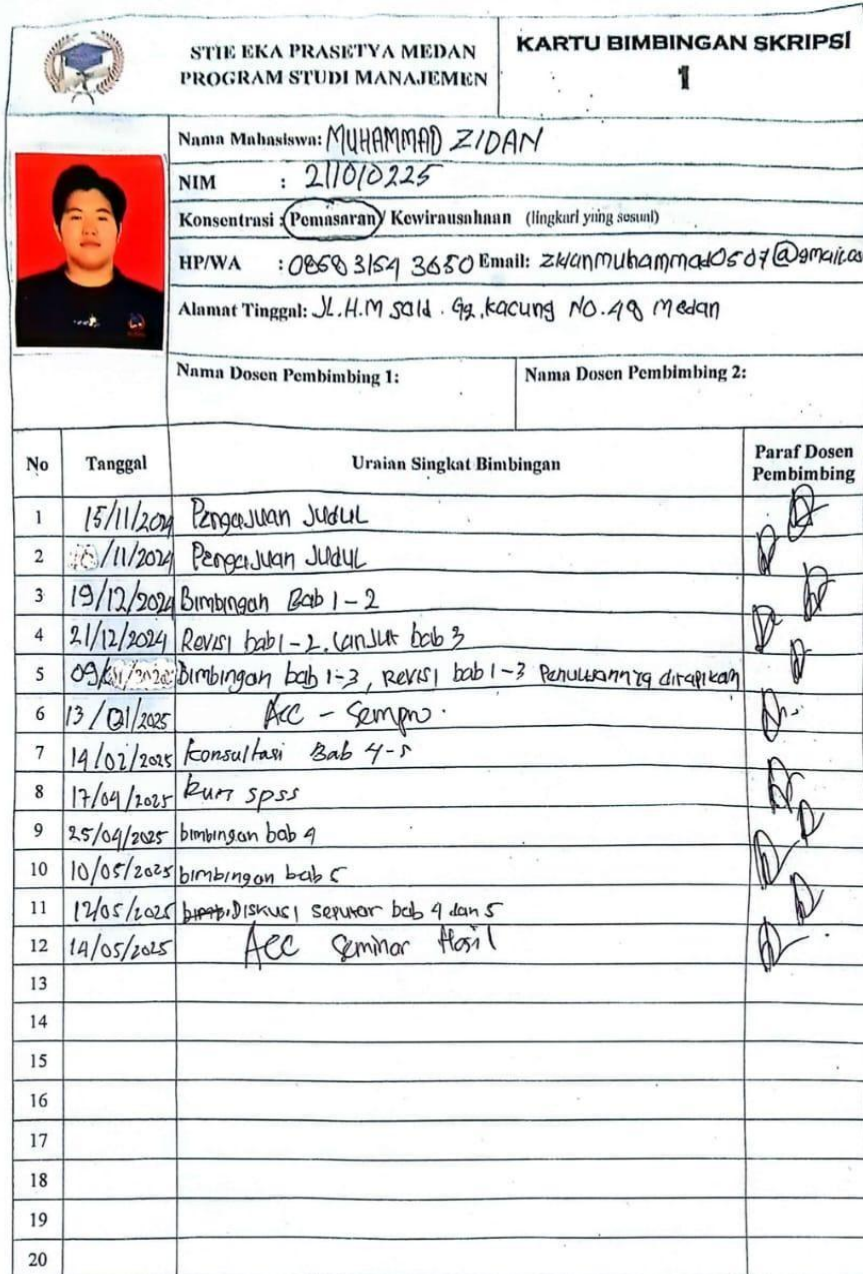 STIE EKA PRASETYA MEDAN
PROGRAM STUDI MANAJEMEN
KARTU BIMBINGAN SKRIPSI
1
Nama Mahasiswa: MUHAMMAD ZIDAN
NIM : 211010225
Konsentrasi : Pemasaran / Kewirausahaan (lingkari yang sesuai)
HP/WA : 0858 3154 3650 Email:
Alamat Tinggal: JL.H.M Said . Gg. Kacung No.48 Medan
Nama Dosen Pembimbing 1:
Nama Dosen Pembimbing 2:
No Tanggal Uraian Singkat Bimbingan Paraf Dosen Pembimbing
1 15/11/2024 Pengajuan Judul
2 /11/2024 Pengajuan Judul
3 19/12/2024 Bimbingan Bab 1-2
4 21/12/2024 Revisi bab 1-2. Lanjut bab 3
5 09/ Bimbingan bab 1-3, Revisi bab 1-3 Penulisannya dirapikan
6 13/01/2025 Acc - Sempro.
7 14/02/2025 Konsultasi Bab 4-5
8 17/04/2025 Run spss
9 25/04/2025 bimbingan bab 4
10 10/05/2025 bimbingan bab 5
11 12/05/2025 Diskusi seputar bab 4 dan 5
12 14/05/2025 Acc Seminar Hasil
13
14
15
16
17
18
19
20